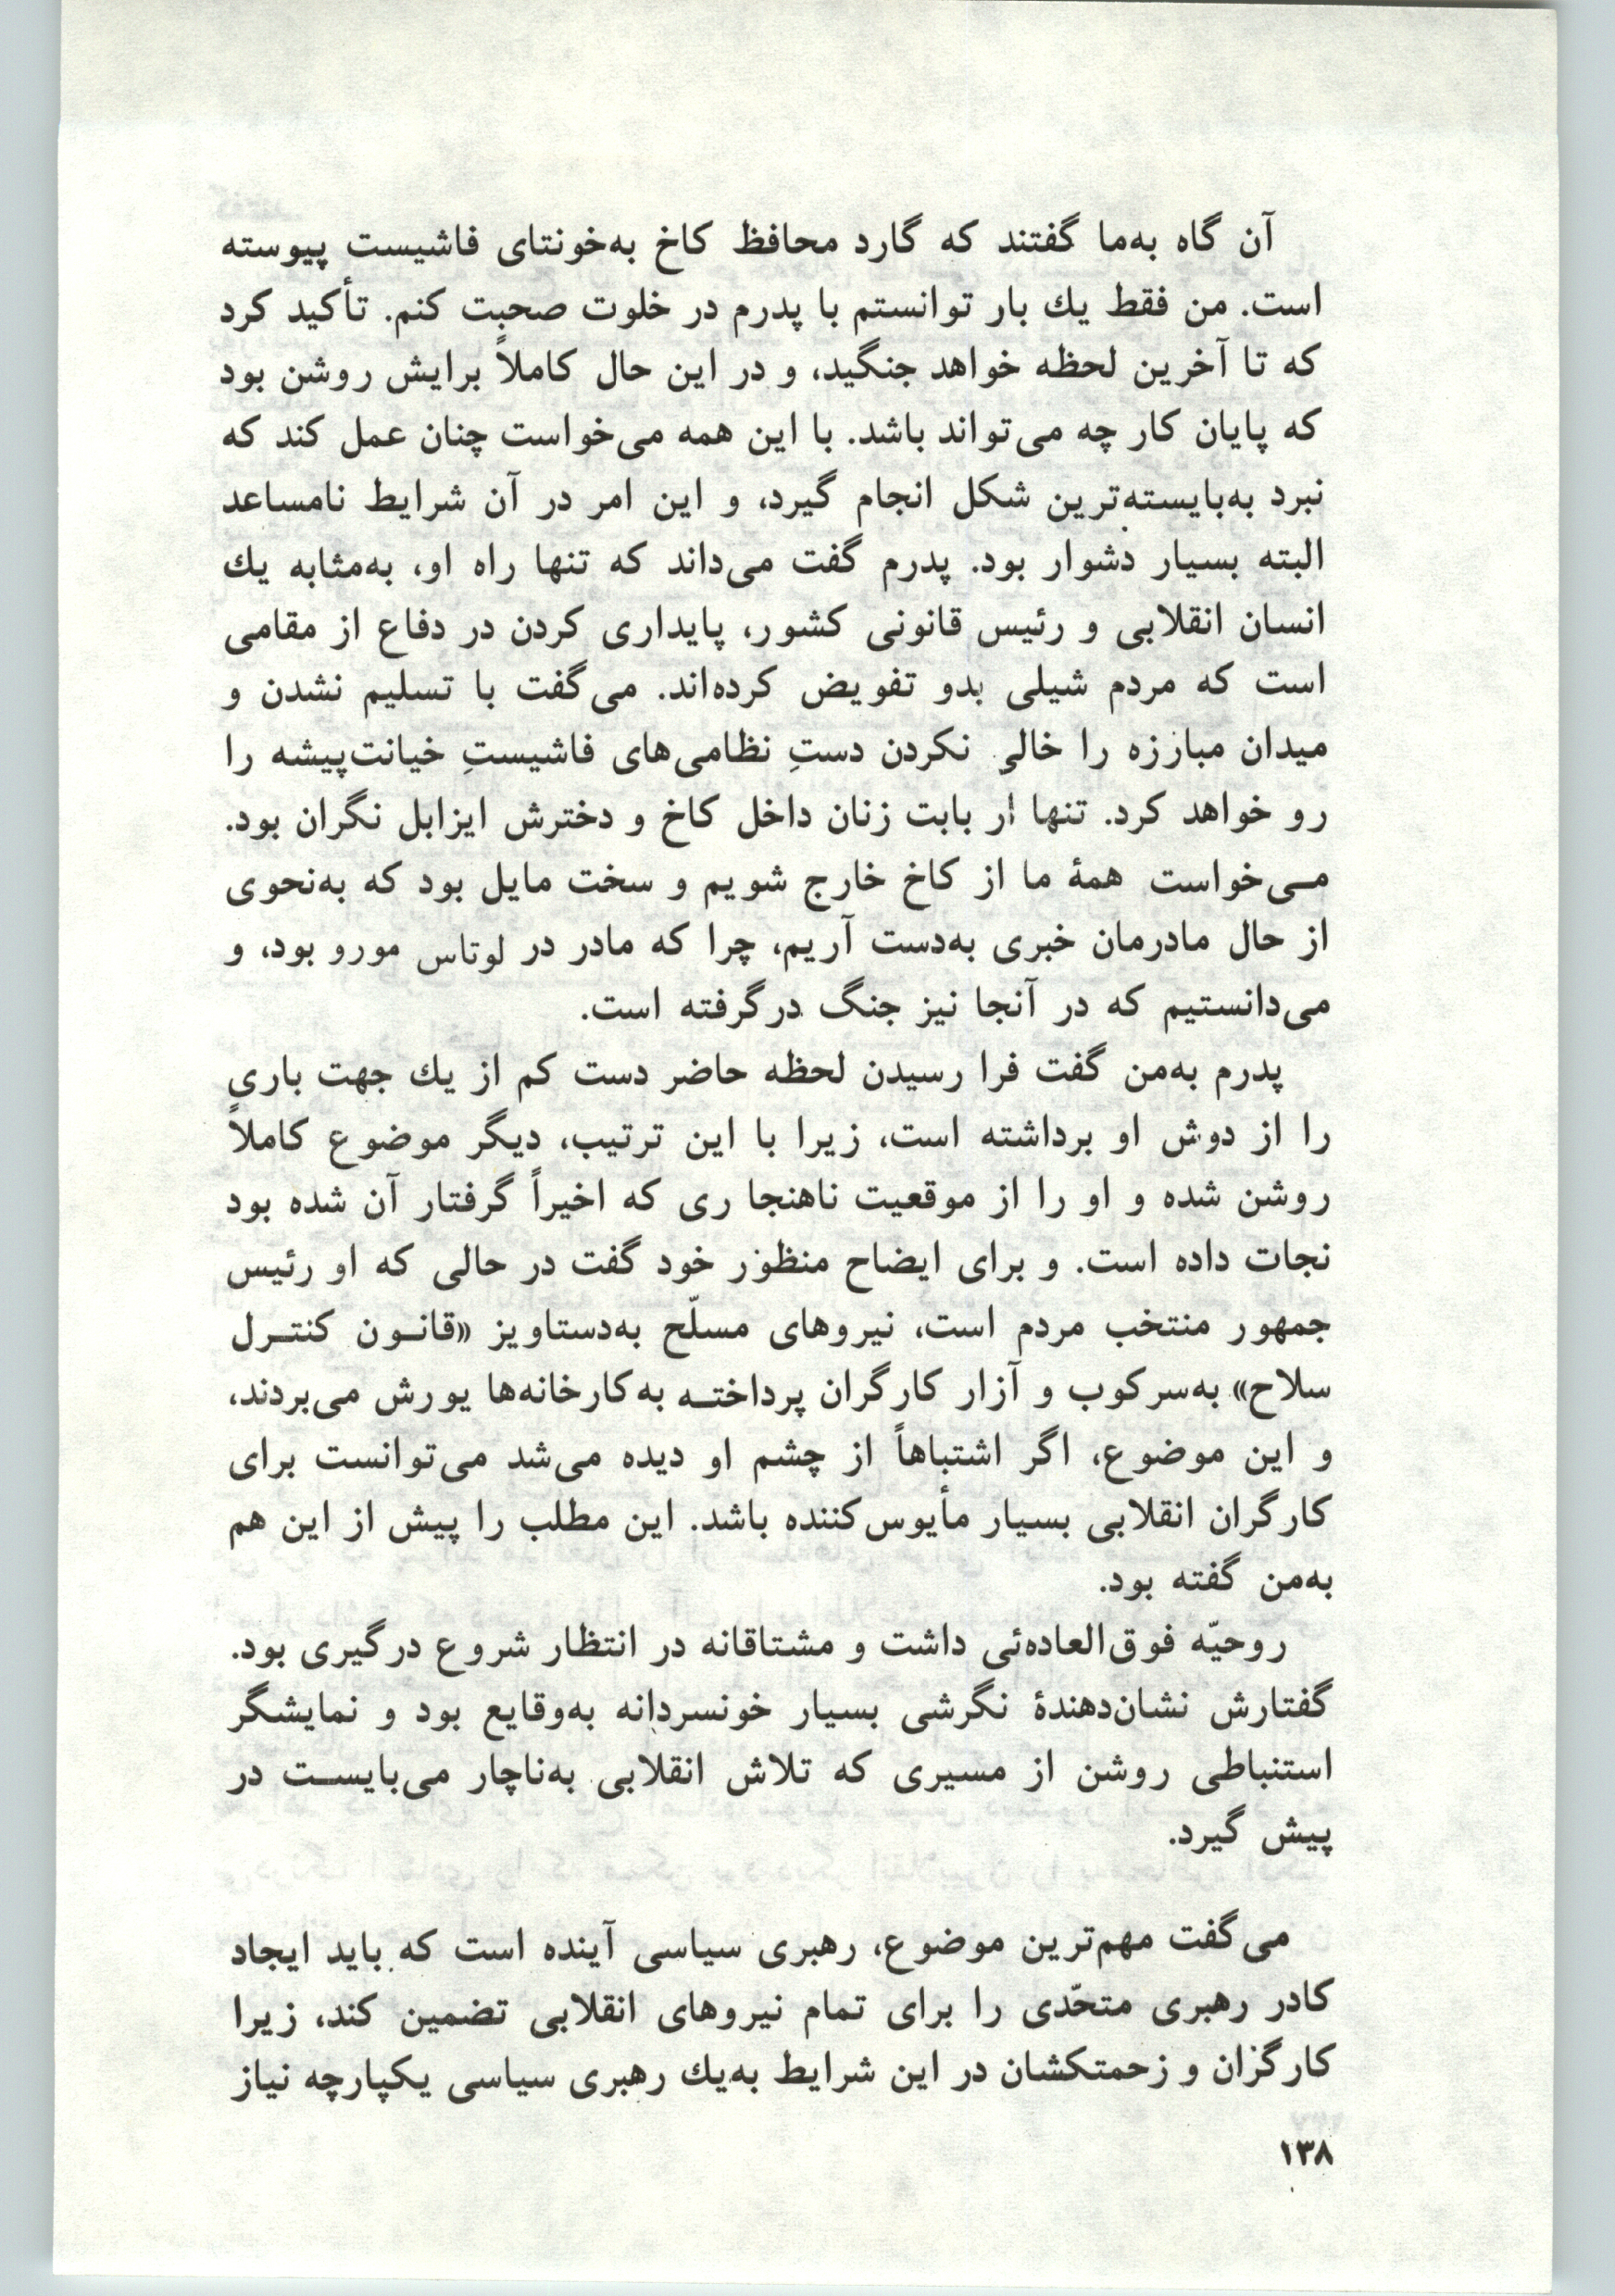 آن گاه به‌ما گفتند که گارد محافظ کاخ به‌خونتای فاشیست پیوسته
است. من فقط یك بار توانستم با پدرم در خلوت صحبت کنم. تأکید کرد
که تا آخرین لحظه خواهد جنگید، و در این حال کاملاً برایش روشن بود
که پایان کار چه می‌تواند باشد. با این همه می‌خواست چنان عمل کند که
نبرد به‌بایسته‌ترین شکل انجام گیرد، و این امر در آن شرایط نامساعد
البته بسیار دشوار بود. پدرم گفت می‌داند که تنها راه او، به‌مثابه یك
انسان انقلابی و رئیس قانونی کشور، پایداری کردن در دفاع از مقامی
است که مردم شیلی بدو تفویض کرده‌اند. می‌گفت با تسلیم نشدن و
میدان مبارزه را خالی نکردن دستِ نظامی‌های فاشیستِ خیانت‌پیشه را
رو خواهد کرد. تنها از بابت زنان داخل کاخ و دخترش ایزابل نگران بود.
مـی‌خواست همهٔ ما از کاخ خارج شویم و سخت مایل بود که به‌نحوی
از حال مادرمان خبری به‌دست آریم، چرا که مادر در لوتاس مورو بود، و
می‌دانستیم که در آنجا نیز جنگ درگرفته است.
پدرم به‌من گفت فرا رسیدن لحظه حاضر دست کم از یك جهت باری
را از دوش او برداشته است، زیرا با این ترتیب، دیگر موضوع کاملاً
روشن شده و او را از موقعیت ناهنجا ری که اخیراً گرفتار آن شده بود
نجات داده است. و برای ایضاح منظور خود گفت در حالی که او رئیس
جمهور منتخب مردم است، نیروهای مسلّح به‌دستاویز «قانـون کنتـرل
سلاح» به‌سرکوب و آزار کارگران پرداختـه به‌کارخانه‌ها یورش می‌بردند،
و این موضوع، اگر اشتباهاً از چشم او دیده می‌شد می‌توانست برای
کارگران انقلابی بسیار مأیوس‌کننده باشد. این مطلب را پیش از این هم
به‌من گفته بود.
روحیّه فوق‌العاده‌ئی داشت و مشتاقانه در انتظار شروع درگیری بود.
گفتارش نشان‌دهندهٔ نگرشی بسیار خونسردانه به‌وقایع بود و نمایشگر
استنباطی روشن از مسیری که تلاش انقلابی به‌ناچار می‌بایسـت در
پیش گیرد.
می‌گفت مهم‌ترین موضوع، رهبری سیاسی آینده است که باید ایجاد
کادر رهبری متحّدی را برای تمام نیروهای انقلابی تضمین کند، زیرا
کارگران و زحمتکشان در این شرایط به‌یك رهبری سیاسی یکپارچه نیاز
۱۳۸